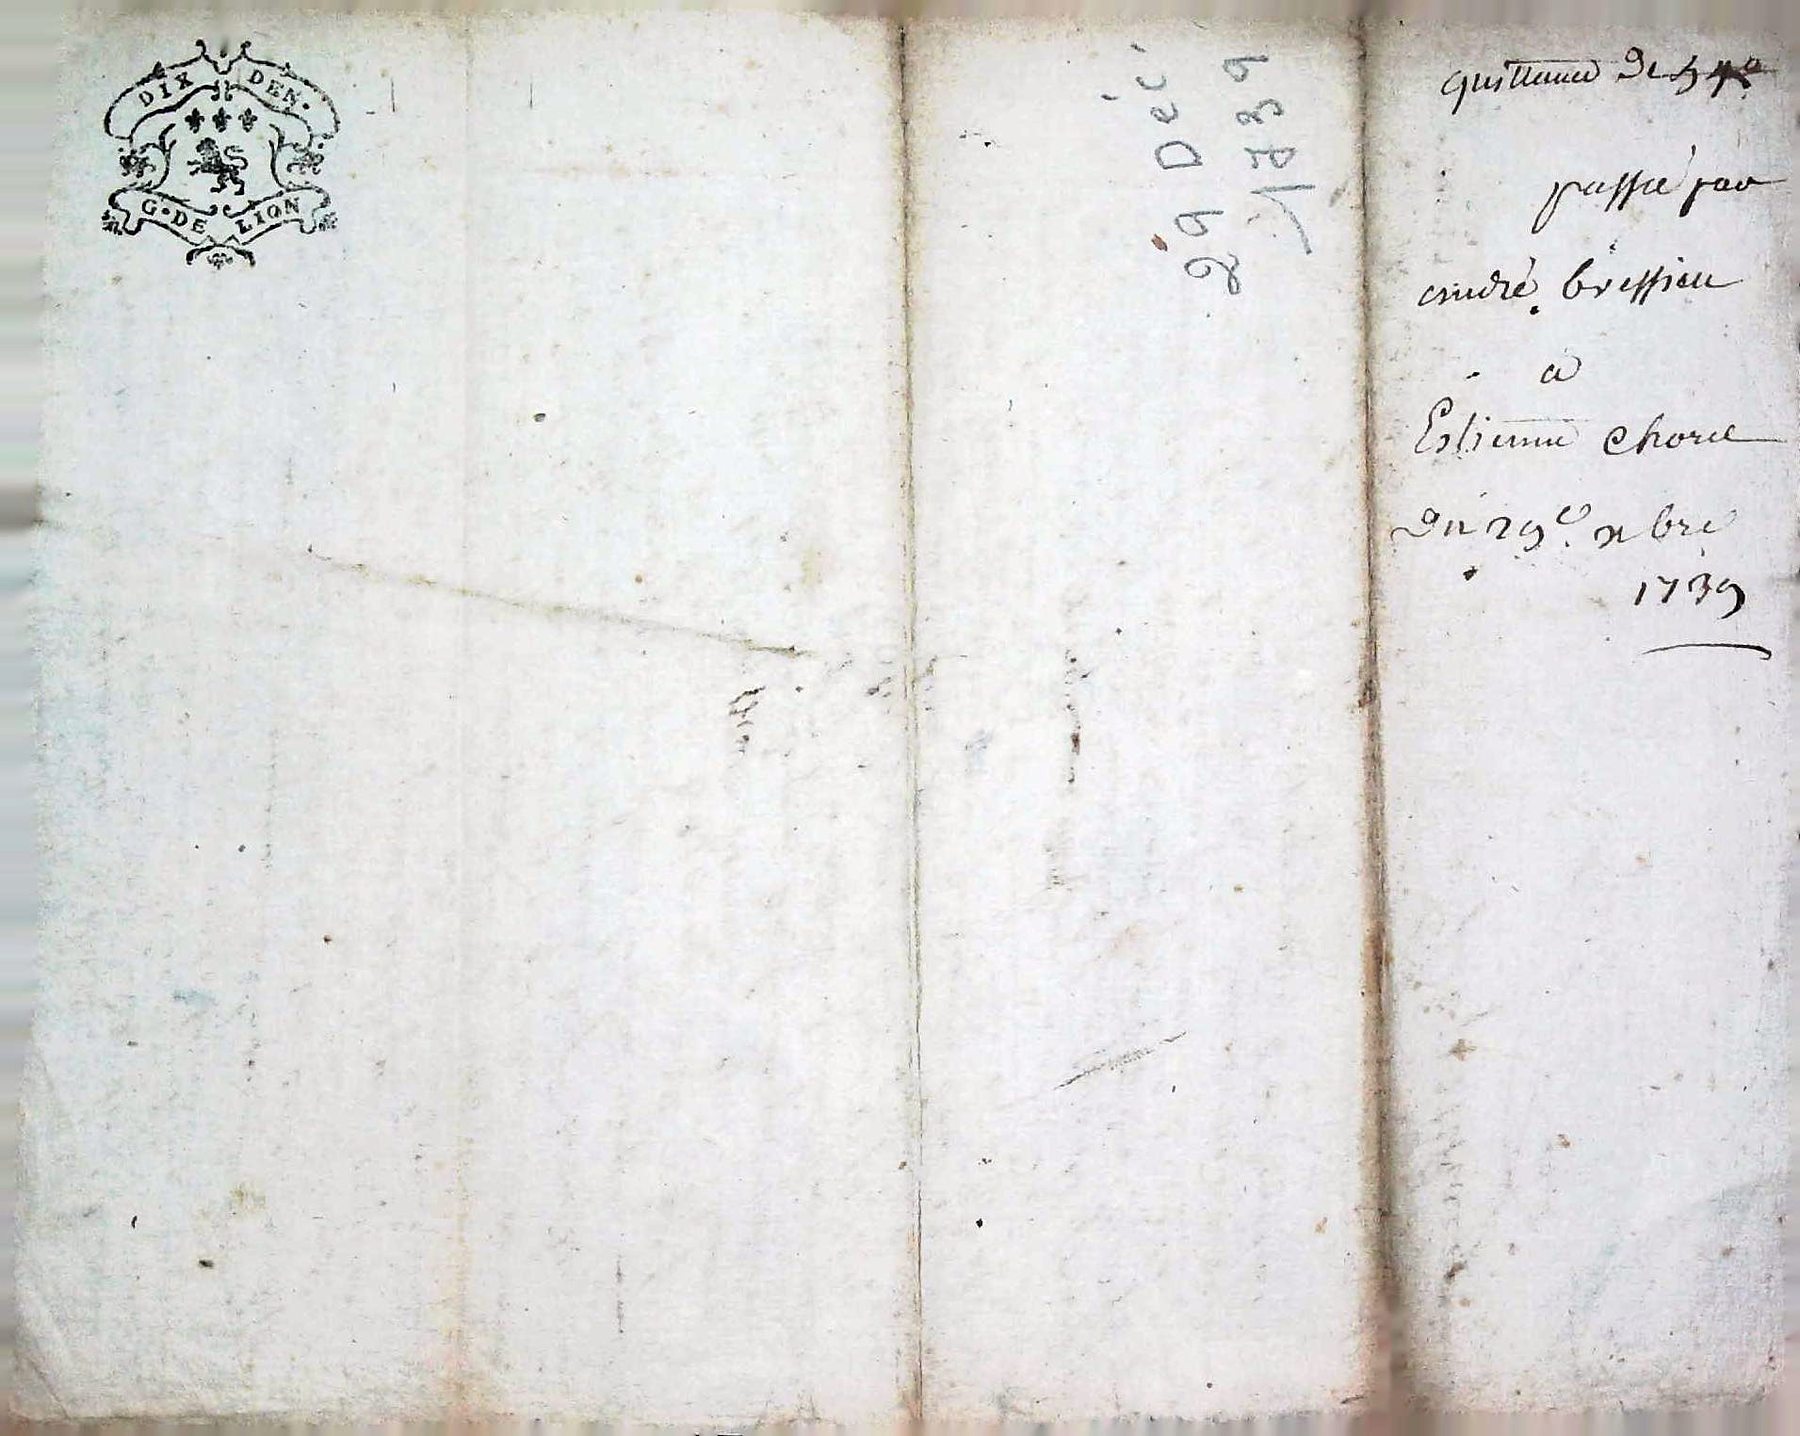 DIX DEN.
G. DE LION
29 Déc
1739
quittance de 54#
passé par
andré bressieu
a
Estienne Chorel
du 29e xbre
1739